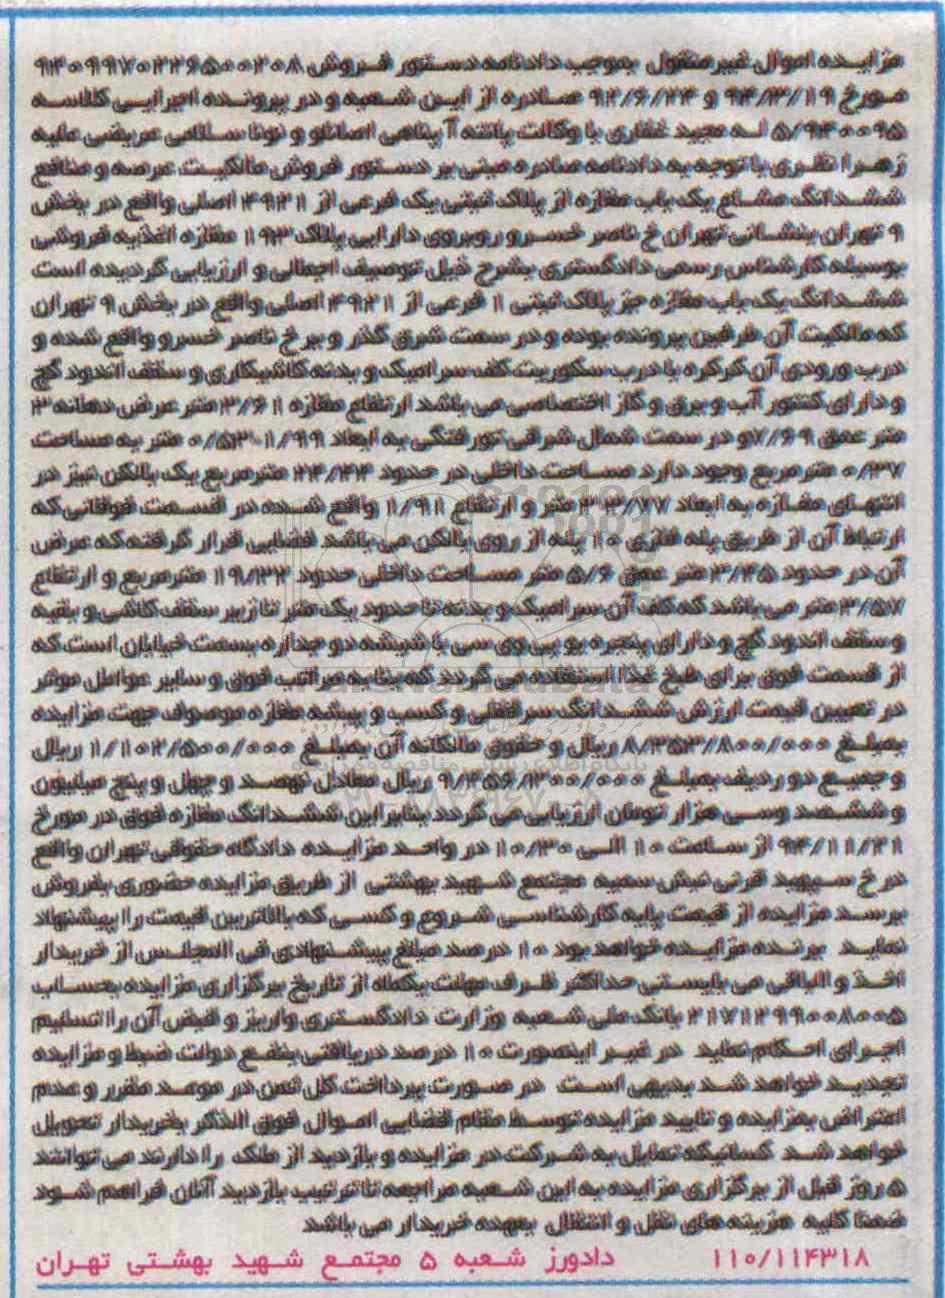 مزایده اموال غیرمنقول بموجب دادنامه دستور فروش ۹۴۰۹۹۷۰۲۲۶۵۰۰۲۰۸
مورخ ۹۴/۳/۱۹ و ۹۴/۶/۲۴ صادره از این شعبه و در پرونده اجرایی کلاسه
۵/۹۴۰۰۹۵ له مجید غفاری با وکالت پانته آ پناهی اصانلو و نونا سلامی عریضی علیه
زهرا نظری با توجه به دادنامه صادره مبنی بر دستور فروش مالکیت عرصه و منافع
ششدانگ مشاع یک باب مغازه از پلاک ثبتی یک فرعی از ۴۹۲۱ اصلی واقع در بخش
۹ تهران بنشانی تهران خ ناصر خسرو روبروی دارایی پلاک ۱۹۳ مغازه اغذیه فروشی
بوسیله کارشناس رسمی دادگستری بشرح ذیل توصیف اجمالی و ارزیابی گردیده است
ششدانگ یک باب مغازه جز پلاک ثبتی ۱ فرعی از ۴۹۲۱ اصلی واقع در بخش ۹ تهران
که مالکیت آن طرفین پرونده بوده و در سمت شرق گذر و بر خ ناصر خسرو واقع شده و
درب ورودی آن کرکره با درب سکوریت کف سرامیک و بدنه کاشیکاری و سقف اندود گچ
و دارای کنتور آب و برق و گاز اختصاصی می باشد ارتفاع مغازه ۳/۶۱ متر عرض دهانه ۳
متر عمق ۷/۶۹ و در سمت شمال شرقی تورفتگی به ابعاد ۱/۹۹-۰/۵۳ متر به مساحت
۰/۳۷ مترمربع وجود دارد مساحت داخلی در حدود ۲۴/۴۴ مترمربع یک بالکن نیز در
انتهای مغازه به ابعاد ۲/۷۷ ۳ متر و ارتفاع ۱/۹۱ واقع شده در قسمت فوقانی که
ارتباط آن از طریق پله فلزی ۱۰ پله از روی بالکن می باشد فضایی قرار گرفته که عرض
آن در حدود ۳/۴۵ متر عمق ۵/۶ متر مساحت داخلی حدود ۱۹/۳۲ مترمربع و ارتفاع
۳/۵۷ متر می باشد که کف آن سرامیک و بدنه تا حدود یک متر تا زیر سقف کاشی و بقیه
و سقف اندود گچ و دارای پنجره یو پی وی سی با شیشه دو جداره بسمت خیابان است که
از قسمت فوق برای طبخ غذا استفاده می گردد که بنا به مراتب فوق و سایر عوامل موثر
در تعیین قیمت ارزش ششدانگ سرقفلی و کسب و پیشه مغازه موصوف جهت مزایده
بمبلغ ۸/۳۵۳/۸۰۰/۰۰۰ ریال و حقوق مالکانه آن بمبلغ ۱/۱۰۲/۵۰۰/۰۰۰ ریال
و جمع دو ردیف بمبلغ ۹/۴۵۶/۳۰۰/۰۰۰ ریال معادل نهصد و چهل و پنج میلیون
و ششصد و سی هزار تومان ارزیابی می گردد بنابراین ششدانگ مغازه فوق در مورخ
۹۴/۱۱/۲۱ از ساعت ۱۰ الی ۱۰/۳۰ در واحد مزایده دادگاه حقوقی تهران واقع
در خ سپهبد قرنی نبش سمیه مجتمع شهید بهشتی از طریق مزایده حضوری بفروش
برسد مزایده از قیمت پایه کارشناسی شروع و کسی که بالاترین قیمت را پیشنهاد
نماید برنده مزایده خواهد بود ۱۰ درصد مبلغ پیشنهادی فی المجلس از خریدار
اخذ و الباقی می بایستی حداکثر ظرف مهلت یکماه از تاریخ برگزاری مزایده بحساب
۲۱۷۱۲۹۹۰۰۸۰۰۵ بانک ملی شعبه وزارت دادگستری واریز و قبض آن را تسلیم
اجرای احکام نماید در غیر اینصورت ۱۰ درصد دریافتی بنفع دولت ضبط و مزایده
تجدید خواهد شد بدیهی است در صورت پرداخت کل ثمن در موعد مقرر و عدم
اعتراض بمزایده و تایید مزایده توسط مقام قضایی اموال فوق الذکر بخریدار تحویل
خواهد شد کسانیکه تمایل به شرکت در مزایده و بازدید از ملک را دارند می توانند
۵ روز قبل از برگزاری مزایده به این شعبه مراجعه تا ترتیب بازدید آنان فراهم شود
ضمنا کلیه هزینه های نقل و انتقال بعهده خریدار می باشد
۱۱۰/۱۱۴۳۱۸ دادورز شعبه ۵ مجتمع شهید بهشتی تهران